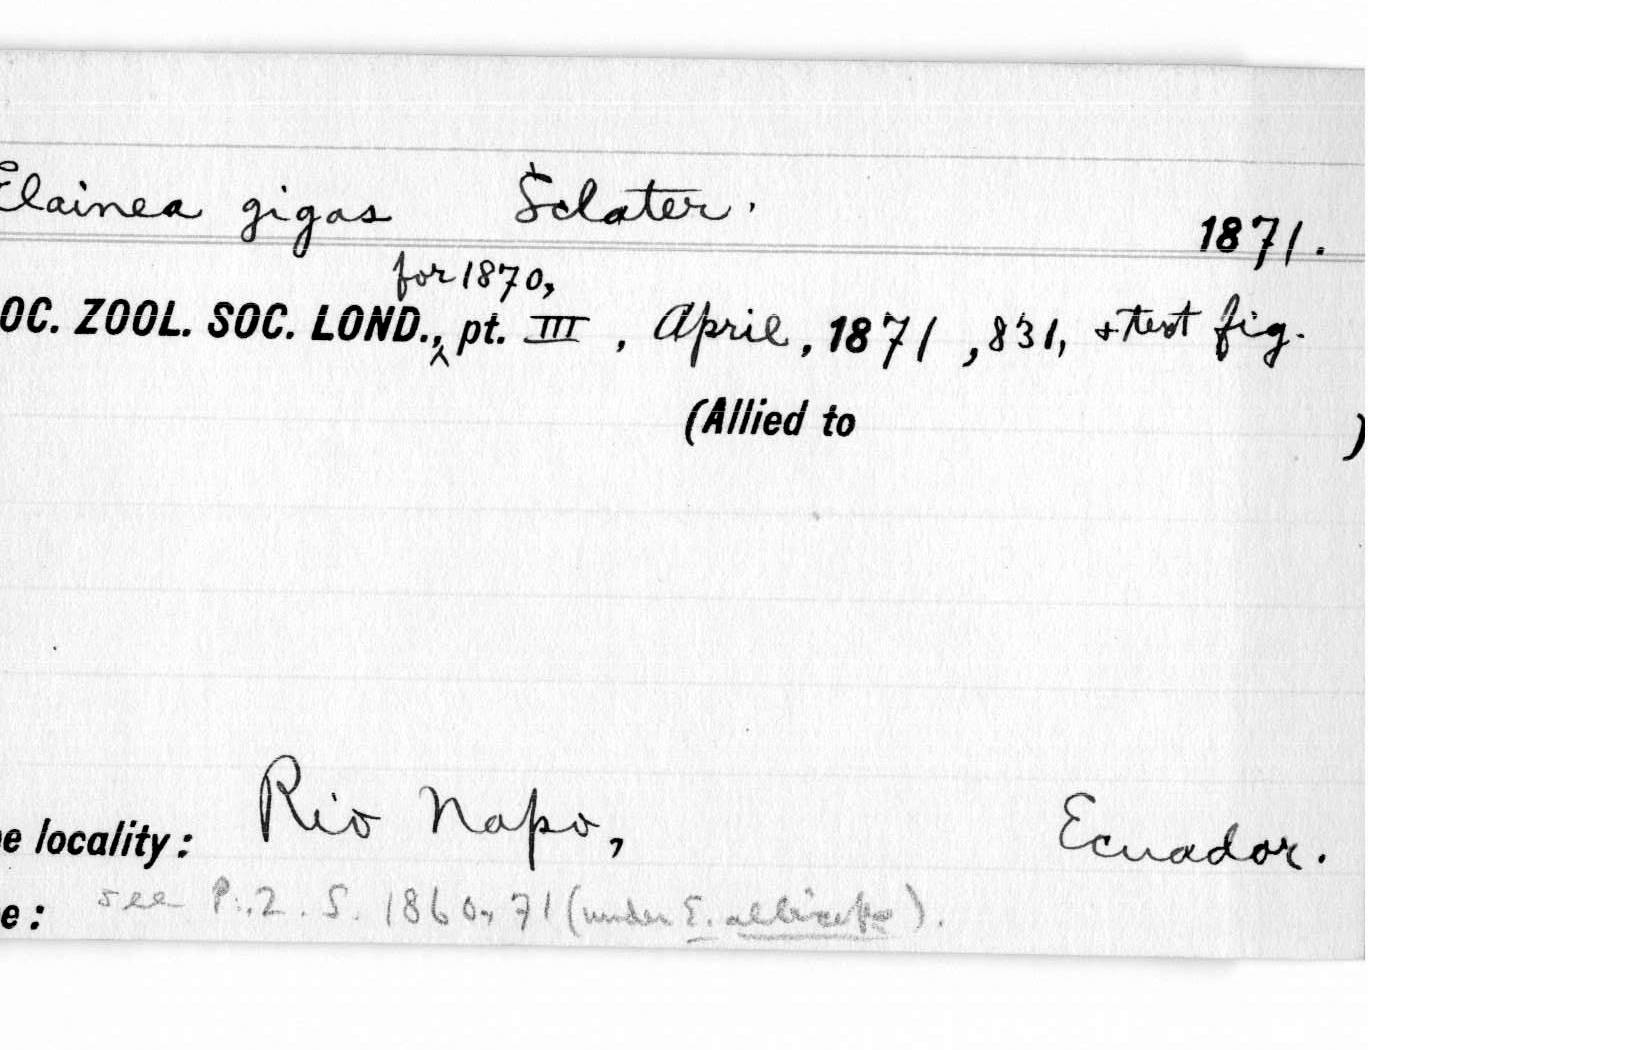 Elainea gigas Sclater. 1871.
for 1870,
OC. ZOOL. SOC. LOND., pt. III, April, 1871, 831, + text fig.
(Allied to )
e locality: Rio Napo, Ecuador.
e: see P.Z.S. 1860, 71 (under E. albiceps).